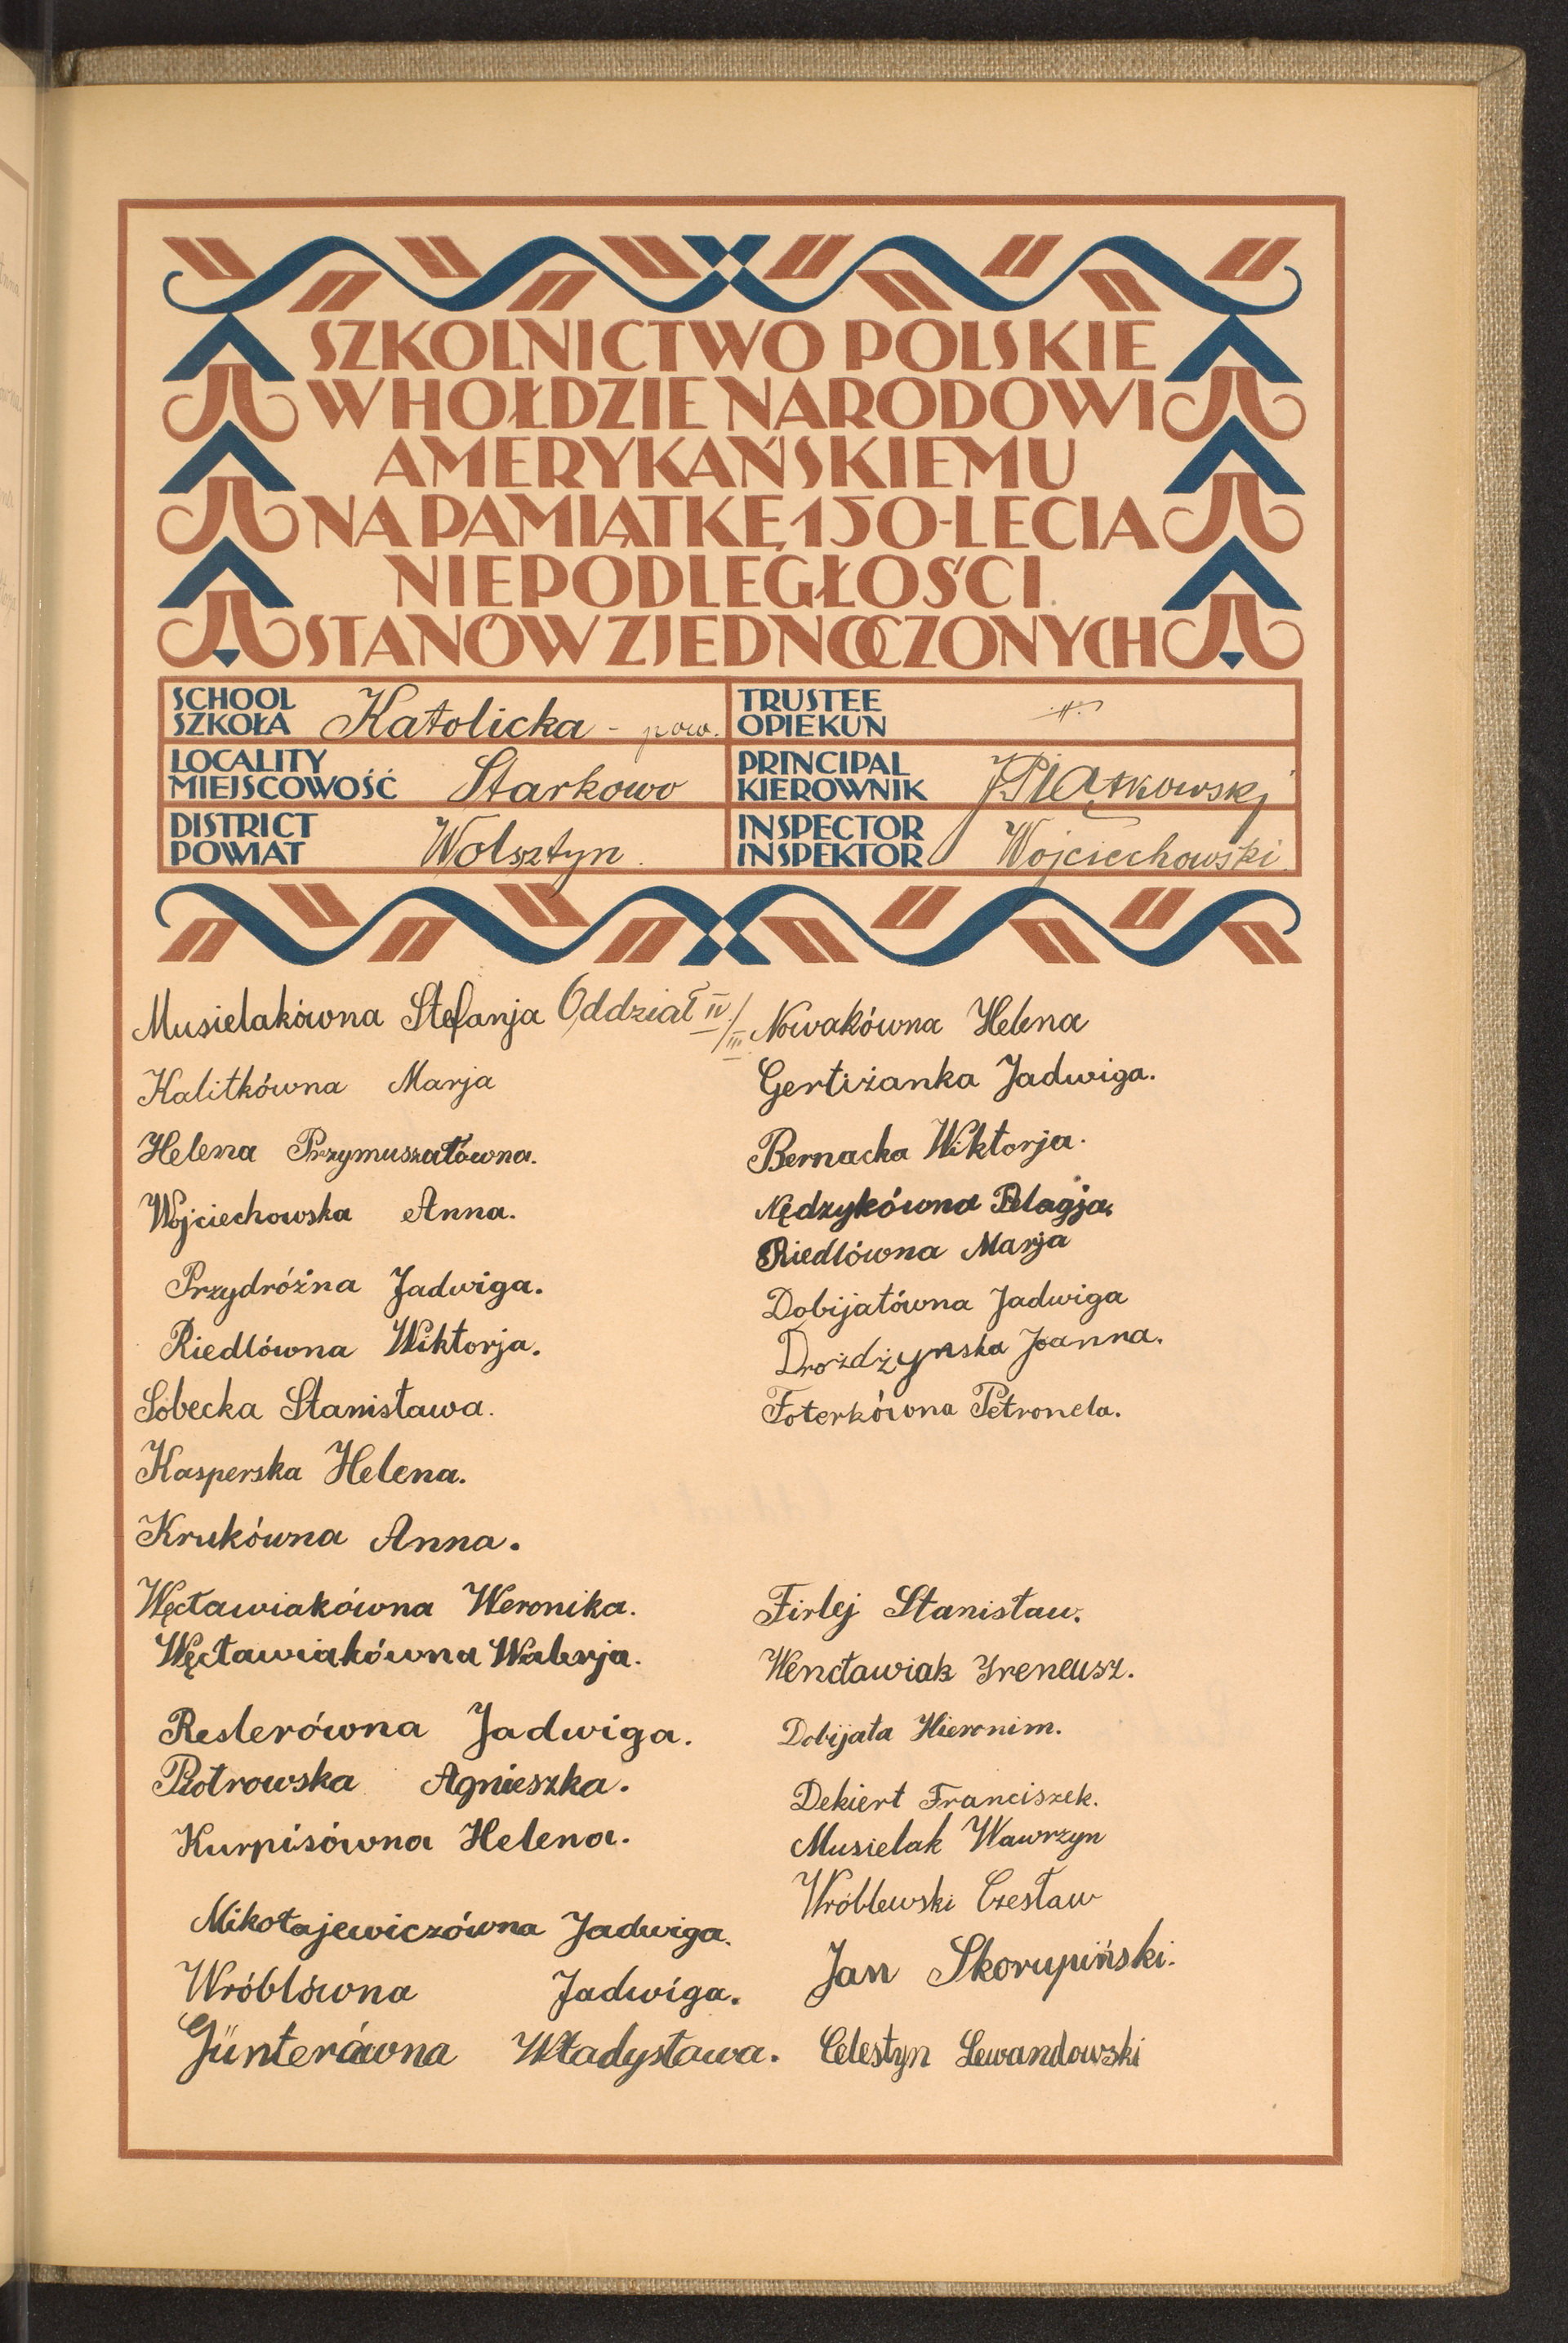 SZKOLNICTWO POLSKIE
W HOŁDZIE NARODOWI
AMERYKAŃSKIEMU
NA PAMIĄTKĘ 150-LECIA
NIEPODLEGŁOŚCI
STANÓW ZJEDNOCZONYCH
SCHOOL
SZKOŁA Katolicka - pow.
LOCALITY
MIEJSCOWOŚĆ Starkowo
DISTRICT
POWIAT Wolsztyn.
TRUSTEE
OPIEKUN
PRINCIPAL
KIEROWNIK J Piątkowski
INSPECTOR
INSPEKTOR Wojciechowski.
Musielakówna Stefanja Oddział IV/III
Kalitkówna Marja
Helena Przymuszałówna.
Wojciechowska Anna.
Przydróżna Jadwiga.
Riedlówna Wiktorja.
Sobecka Stanisława.
Kasperska Helena.
Krukówna Anna.
Węcławiakówna Weronika.
Węcławiakówna Walerja.
Reslerówna Jadwiga.
Piotrowska Agnieszka.
Kurpisówna Helena.
Mikołajewiczówna Jadwiga.
Wróblówna Jadwiga.
Günterówna Władysława.
Nowakówna Helena
Gertiżanka Jadwiga.
Bernacka Wiktorja.
Nędzykówna Pelagja.
Riedlówna Marja
Dobijatówna Jadwiga
Drożdżynska Joanna.
Foterkówna Petronela.
Firlej Stanisław.
Wencławiak Ireneusz.
Dobijata Hieronim.
Dekiert Franciszek.
Musielak Wawrzyn
Wróblewski Czesław
Jan Skorupiński.
Celestyn Lewandowski